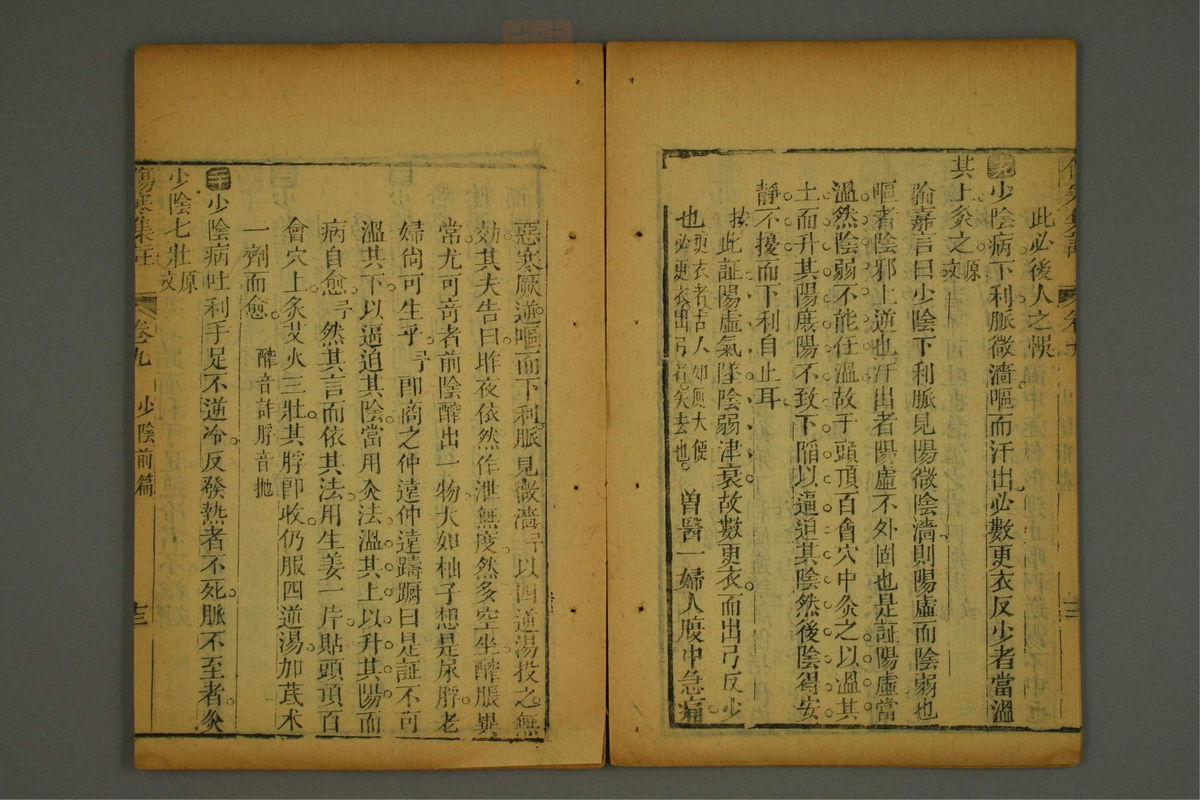 此必後人之悞
少陰病下利脈微濇嘔而汗出必數更衣反少者當溫
其上灸之原文
喻嘉言曰少陰下利脈見陽微陰濇則陽虛而陰弱也
嘔者陰邪上逆也汗出者陽虛不外固也是証陽虛當
溫然陰弱不能任溫故于頭頂百會穴中灸之以溫其
土而升其陽庶陽不致下陷以逼迫其陰然後陰得安
靜不擾而下利自止耳
按此証陽虛氣墜陰弱津衰故數更衣而出弓反少
也更衣者古人如厠大便必更衣出弓者矢去也 曽醫一婦人腹中急痛
惡寒厥逆嘔而下利脈見微濇弓以四逆湯投之無
効其夫告曰昨夜依然作泄無度然多空坐醡脹異
常尤可竒者前陰醡出一物大如柚子想是尿脬老
婦尙可生乎弓即商之仲逵仲逵躊蹰曰是証不可
溫其下以逼迫其陰當用灸法溫其上以升其陽而
病自愈弓然其言而依其法用生姜一片貼頭頂百
會穴上灸艾火三壯其脬即收仍服四逆湯加茋术
一劑而愈 醡音詐脬音抛
三十少陰病吐利手足不逆冷反發熱者不死脈不至者灸
少陰七壯原文
傷寒集註 卷九 少陰前篇 十三